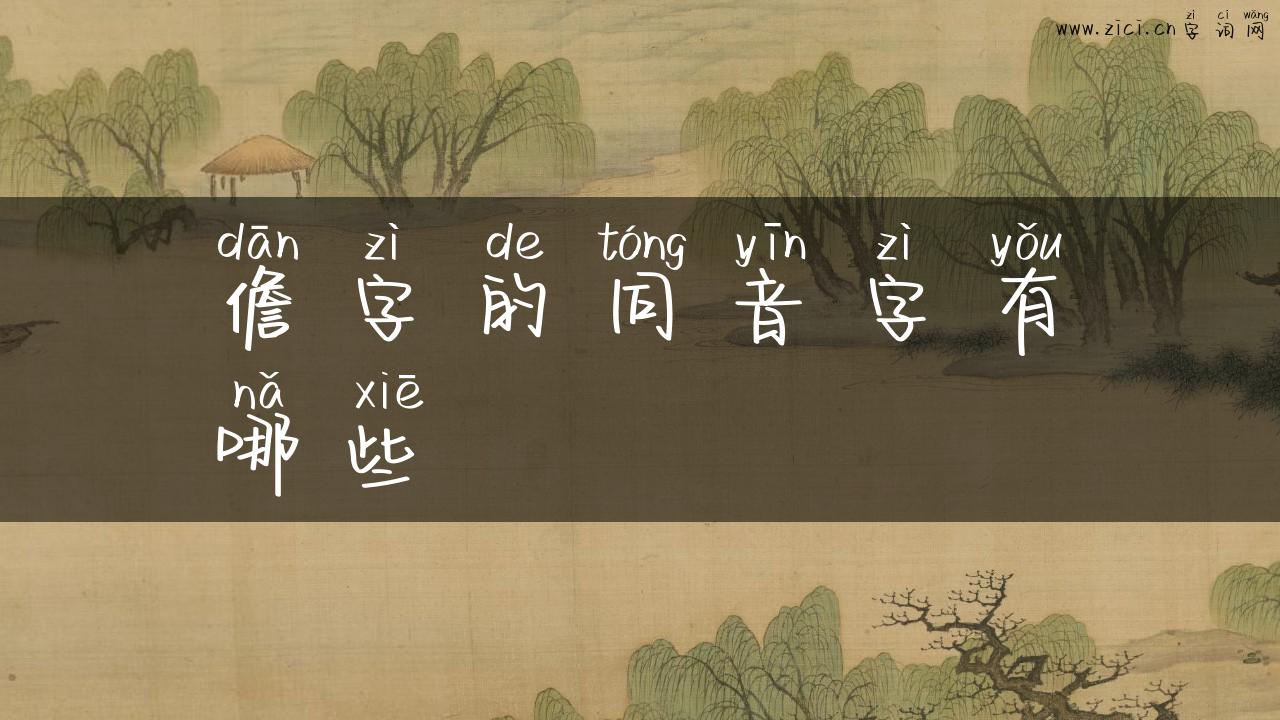 zì cí wǎng
www.zici.cn 字 词 网
dān zì de tóng yīn zì yǒu
儋 字 的 同 音 字 有
nǎ xiē
哪 些